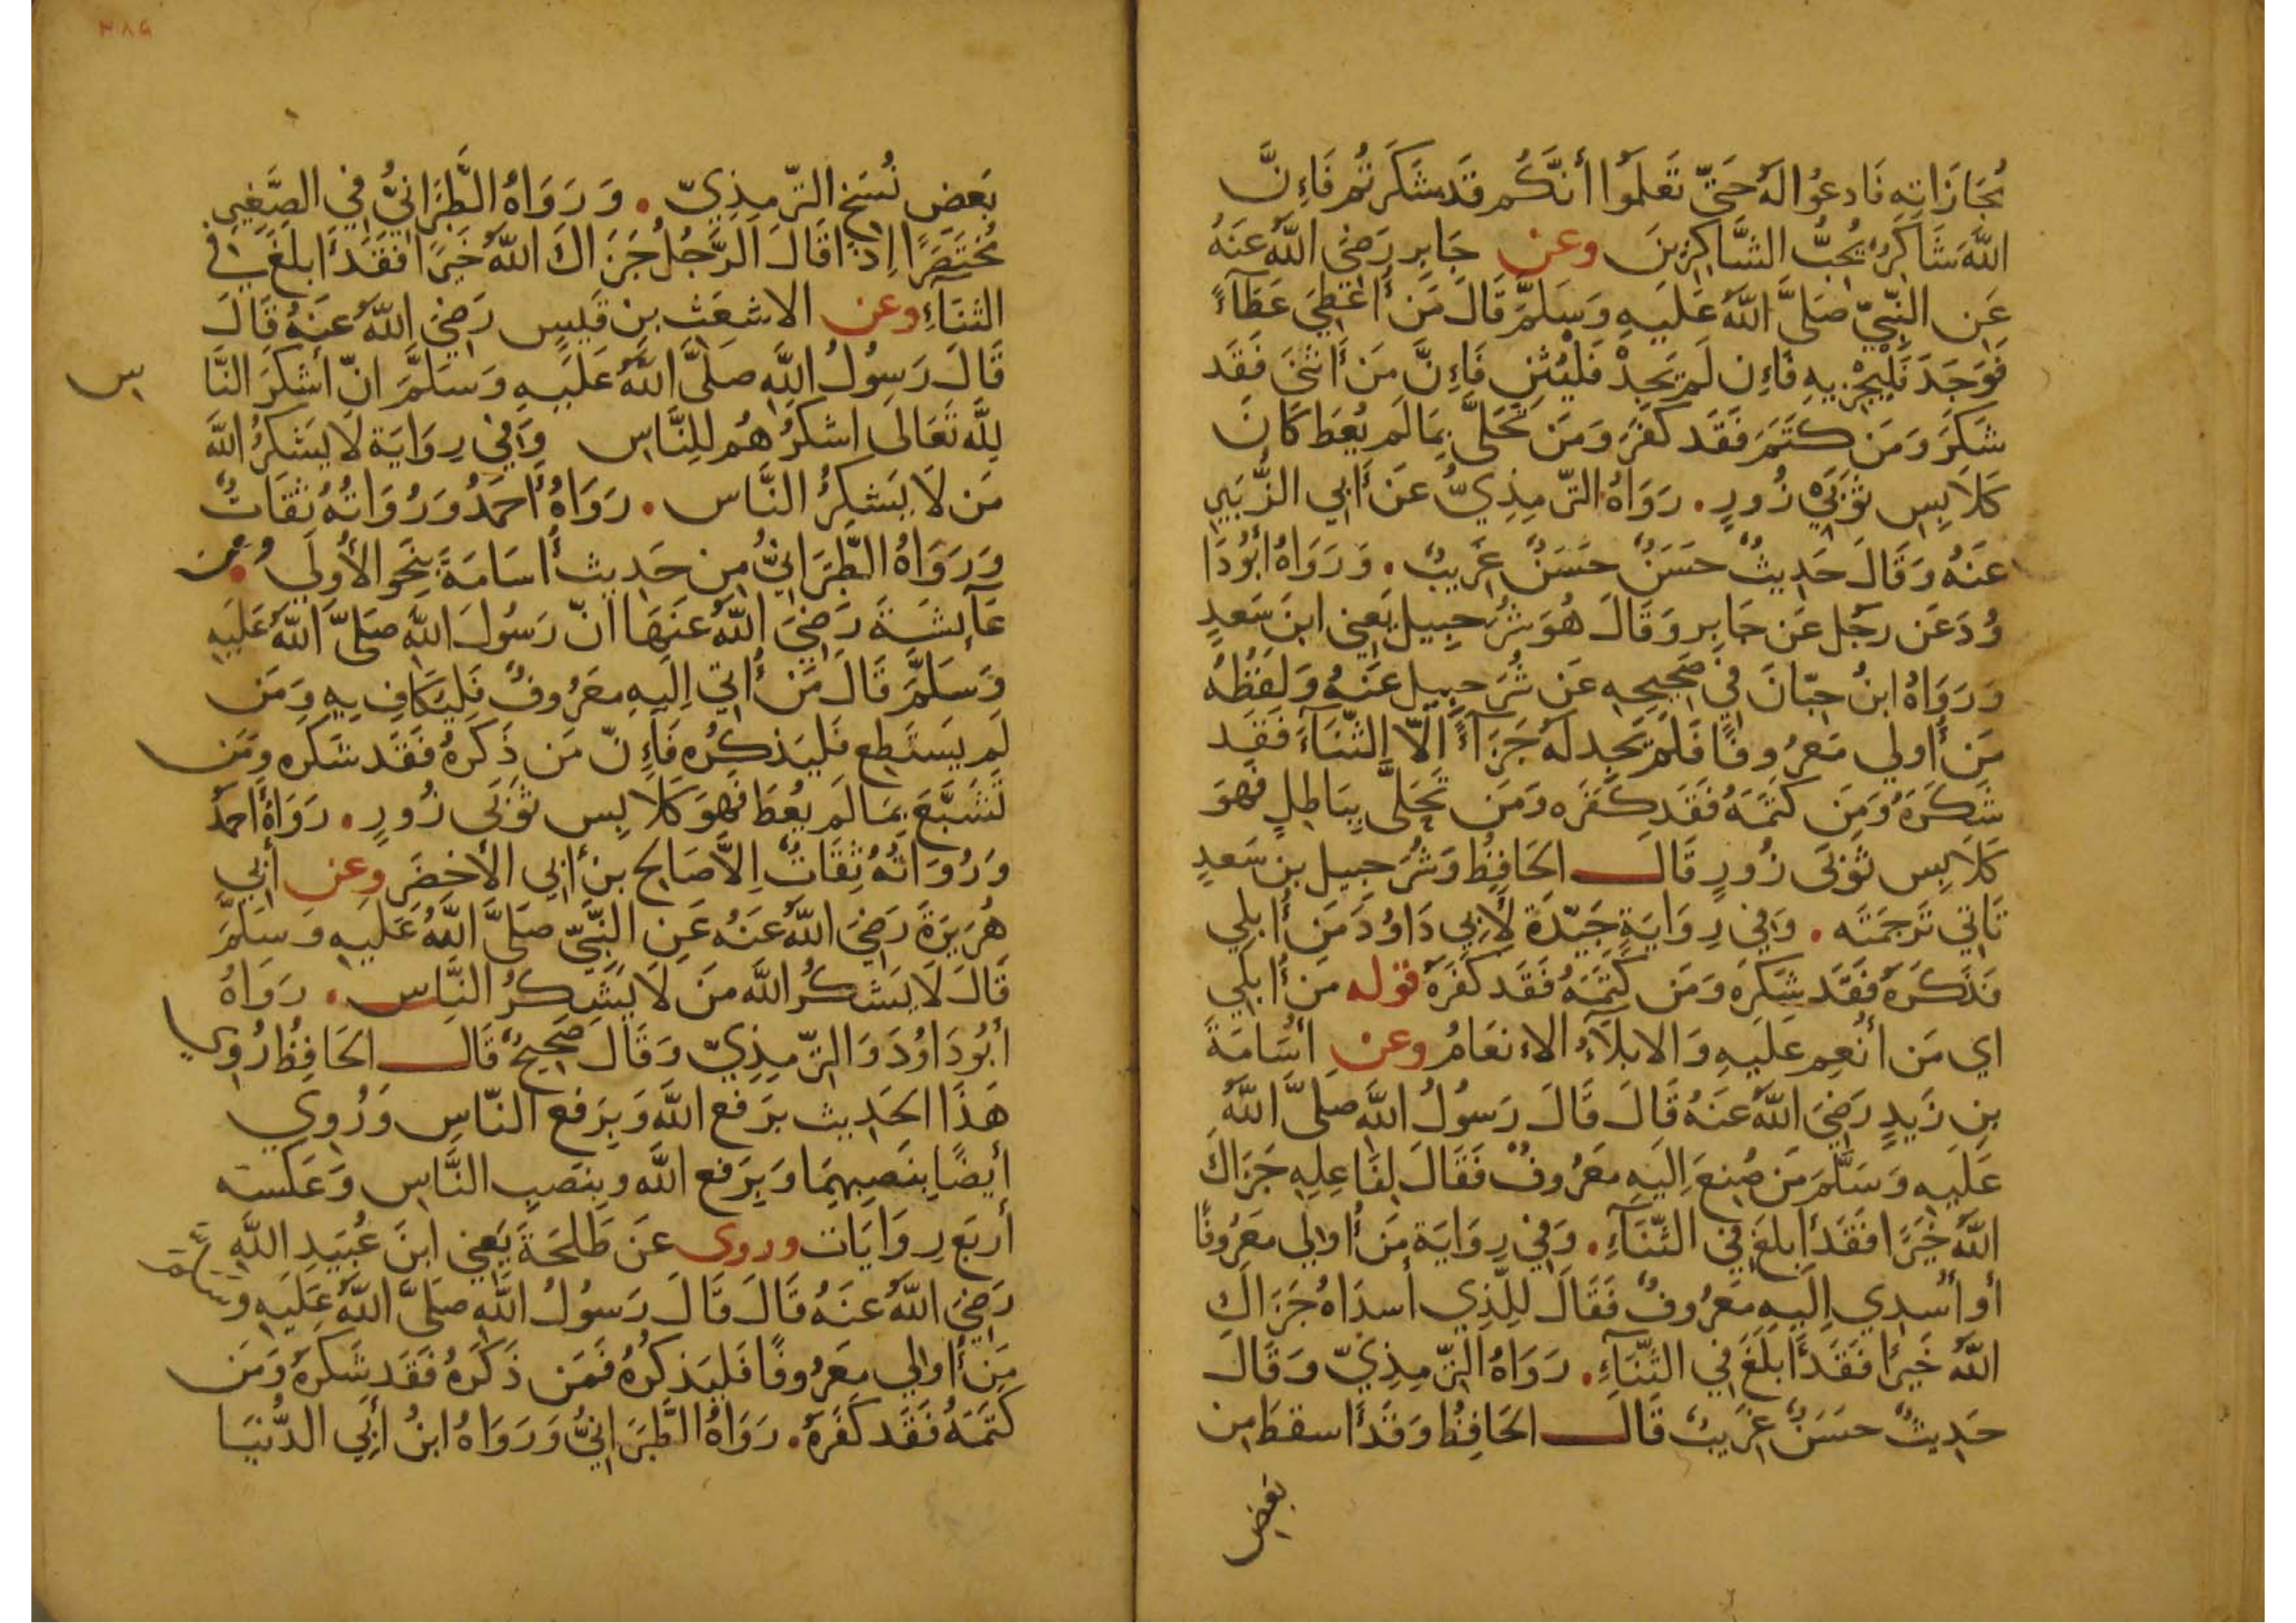 مُجَازَاتِهِ فَادعُوُا لَهُ حَتّى تَعَلَموُا أنَّكُم قَد شَكَرتُم فَاءِنَّ
اللَّهَ شَاكِرٌ يُحِبُّ الشَّاكِرِينَ وعن جَابِرٍ رَضِيَ اللَّهُ عَنهُ
عَنِ النَّبِيّ صَلَّى اللَّهُ عَلَيهِ وَسَلَّمَ قَالَ مَن أُعْطِيَ عَطَآءً
فَوَجَدَ فَليَجْزِ بِهِ فَاءِن لَم يَجِدْ فَليُثنِ فَاءِنَّ مَن أَثنَى فَقَد
شَكَرَ وَمَن كَتَمَ فَقَد كَفَرَ وَمَن تَحَلَّى بِمَا لَم يُعطَ كَانَ
كَلاَبِسِ ثَوبَي زُورٍ. رَوَاهُ التّرمِذِيُّ عَن أَبي الزُّبَيرِ
عَنهُ وَقَالَ حَدِيثٌ حَسَنٌ حَسَنٌ غَرِيبٌ. وَرَوَاهُ أبُودَا
وُدَ عَن رجُل عَن جَابِرٍ وَقَالَ هُوَ شُرَحبِيل يَعنِي ابنَ سَعدٍ
وَرَوَاهُ ابنُ حِبّانَ فِي صَحِيحِهِ عَن شُرَحبِيل عَنهُ وَلَفظُهُ
مَن أُولي مَعرُوفًا فَلَم يَجِد لَهُ جَزَآءً اَلاّ الثّنَآءَ فَقَد
شَكَرَهُ وَمَن كَتَمَهُ فَقَد كَفَرَه وَمَن تَحَلَّى بِبَاطِلٍ فَهوَ
كَلاَبِس ثَوبَى زُورٍ قَالَ الحَافِظُ وَشُرَحبِيل بن سَعدٍ
تَاتي تَرجَمَتَه. وَفي رِوَايَةٍ جَيّدَة لأَبي دَاوُدَ مَن أُبلِي
فَذَكَرَهُ فَقَد شَكَرَه وَمَن كَتَمَهُ فَقَد كَفَرَهُ قوله مَن أُبلِي
اي مَن أُنعِم عَلَيهِ وَالابلآءُ الاءنعَامُ وعن أسَامَةَ
بنِ زَيدٍ رَضيَ اللَّهُ عَنهُ قَالَ قَالَ رَسُولُ اللَّهِ صَلَّى اللَّهُ
عَلَيهِ وَسَلَّمَ مَن صُنِعَ اِلَيهِ مَعرُوفٌ فَقَالَ لِفَاعِلِهِ جَزَاكَ
اللَّهُ خَيرًا فَقَد أَبلَغَ في الثّنَآءِ. وَفي رِوَايَة مَن أُولِي مَعرُوفًا
أو أسدِي اِلَيهِ مَعرُوفٌ فَقَالَ لِلَّذِي أسدَاهُ جَزَاكَ
اللَّهُ خَيرًا فَقَد أَبلَغَ في الثّنَآءِ. رَوَاهُ التّرمِذِيّ وَقَالَ
حَدِيثٌ حسَنٌ غَرِيبٌ قَالَ الحَافِظُ وَقَد أسقطَ مِن
بعض
٣٨٩
بَعضِ نُسَخ التّرمذِيّ. وَرَوَاهُ الطَّبَرَانيُّ في الصَّغِيرِ
مُختَصَرًا اِذَا قَالَ الرَّجُلُ جَزَاكَ اللَّهُ خَيرًا فَقَد أَبلَغَ في
الثنَآءِ وعن الاشعَث بن قَيسٍ رَضيَ اللَّهُ عَنهُ قَالَ
قَالَ رَسُولُ اللَّهِ صَلَّى اللَّهُ عَلَيهِ وَسَلَّمَ انّ أشكَرَ النَّا س
لِلَّه تَعَالَى اشكَرُهُم للِنَّاسِ وَفي رِوَايَة لَا يَشكُرُ اللَّهَ
مَن لَا يَشكُرُ النَّاس. رَوَاهُ أحمَدُ وَرُوَاتُهُ ثِقَاتٌ
وَرَوَاهُ الطَّبَرَانيُّ مِن حَدِيث أُسَامَةَ بِنَحوِ الأُولَى وعن
عَآئِشَةَ رَضِيَ اللَّهُ عَنهَا انّ رَسُولَ اللَّهِ صَلَّى اللَّهُ عَلَيهِ
وَسَلَّمَ قَالَ مَن أُتي اِلَيهِ مَعرُوفٌ فَليُكَافِ بِهِ وَمَن
لَم يَستَطِع فَليَذكُرُه فَاءِنّ مَن ذَكَرهُ فَقَد شَكَره وَمَن
تَشَبَّعَ بِمَا لَم يُعطَ فَهوَ كَلاَبِس ثَوبَى زُورٍ. رَوَاهُ أحمَدُ
وَرُوَاتُهُ ثِقَاتٌ اِلاَّ صَالِح بن أبي الأخضَرِ وعن أبي
هُرَيرَةَ رَضِيَ اللَّهُ عَنهُ عَنِ النَّبِيّ صَلَّى اللَّهُ عَلَيهِ وَسَلَّمَ
قَالَ لَا يَشكُرُ اللَّهَ مَن لَا يَشكُرُ النَّاس. رَوَاهُ
أبُودَاوُدَ وَالتّرمِذِيّ وَقَالَ صَحِيحٌ قَالَ الحَافِظُ رُوي
هَذَا الحَدِيث بِرَفعِ اللَّه وَبِرَفعِ النّاسِ وَرُوِي
أيضًا بِنَصبِهِمَا وَبِرَفعِ اللَّه وبِنَصبِ النَّاسِ وَعَكسَه
أربَع رِوَايَات وروى عَن طَلحَةَ يَعني ابنَ عُبَيدِ اللَّهِ
رَضيَ اللَّهُ عَنهُ قَالَ قَالَ رَسُولُ اللَّهِ صَلَّى اللَّهُ عَلَيهِ وسلم
مَن أُولي مَعرُوفًا فَليَذكُرهُ فَمَن ذَكَرَهُ فَقَد شَكَرهُ وَمَن
كَتَمَهُ فَقَد كَفَرَهُ. رَوَاهُ الطَّبَرَانيُّ وَرَوَاهُ ابنُ أبِي الدُّنيَا